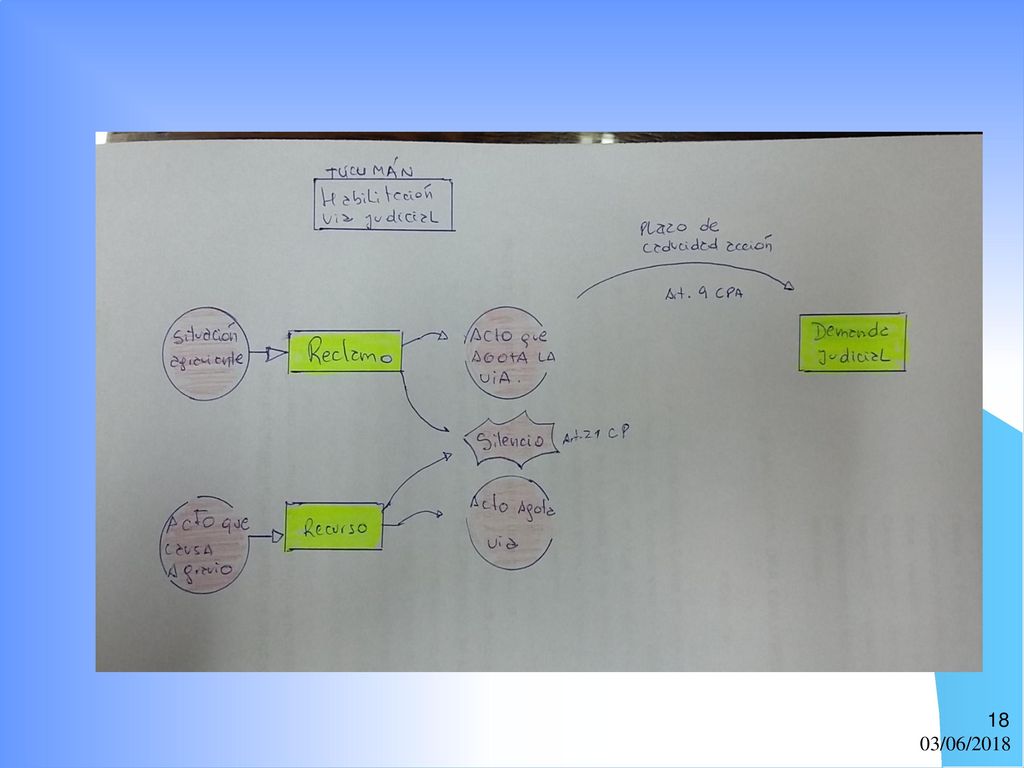 TUCUMÁN
Habilitación
via judicial
Plazo de
caducidad acción
Art. 9 CPA
Situación
agraviante
Reclamo
Acto que
AGOTA LA
VIA.
Demanda
Judicial
Silencio
Art. 21 CP
Acto que
causa
Agravio
Recurso
Acto Agota
via
18
03/06/2018